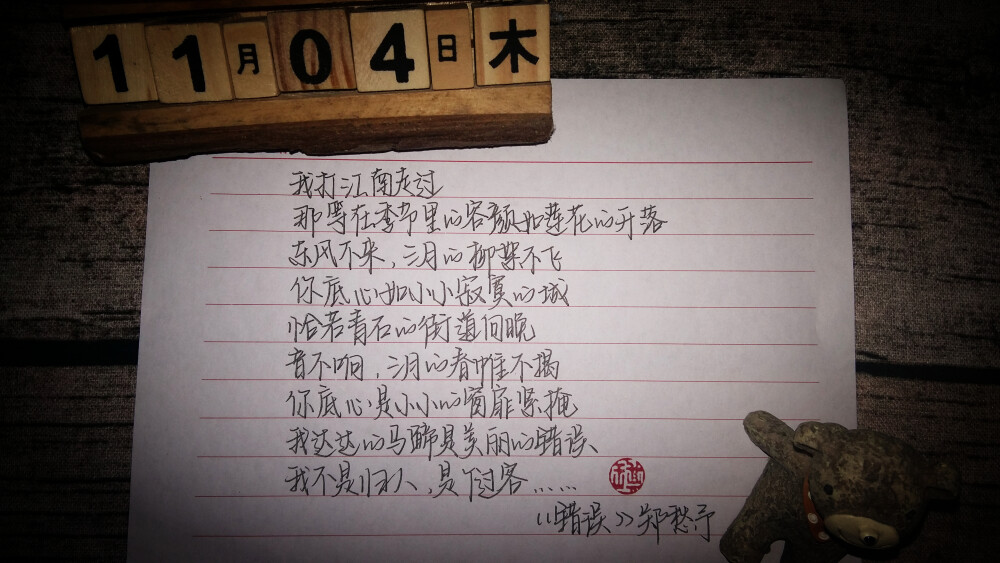 11月04日木
我打江南走过
那等在季节里的容颜如莲花的开落
东风不来，三月的柳絮不飞
你底心如小小寂寞的城
恰若青石的街道向晚
音不响，三月的春帷不揭
你底心是小小的窗扉紧掩
我达达的马蹄是美丽的错误、
我不是归人，是个过客……
《错误》郑愁予